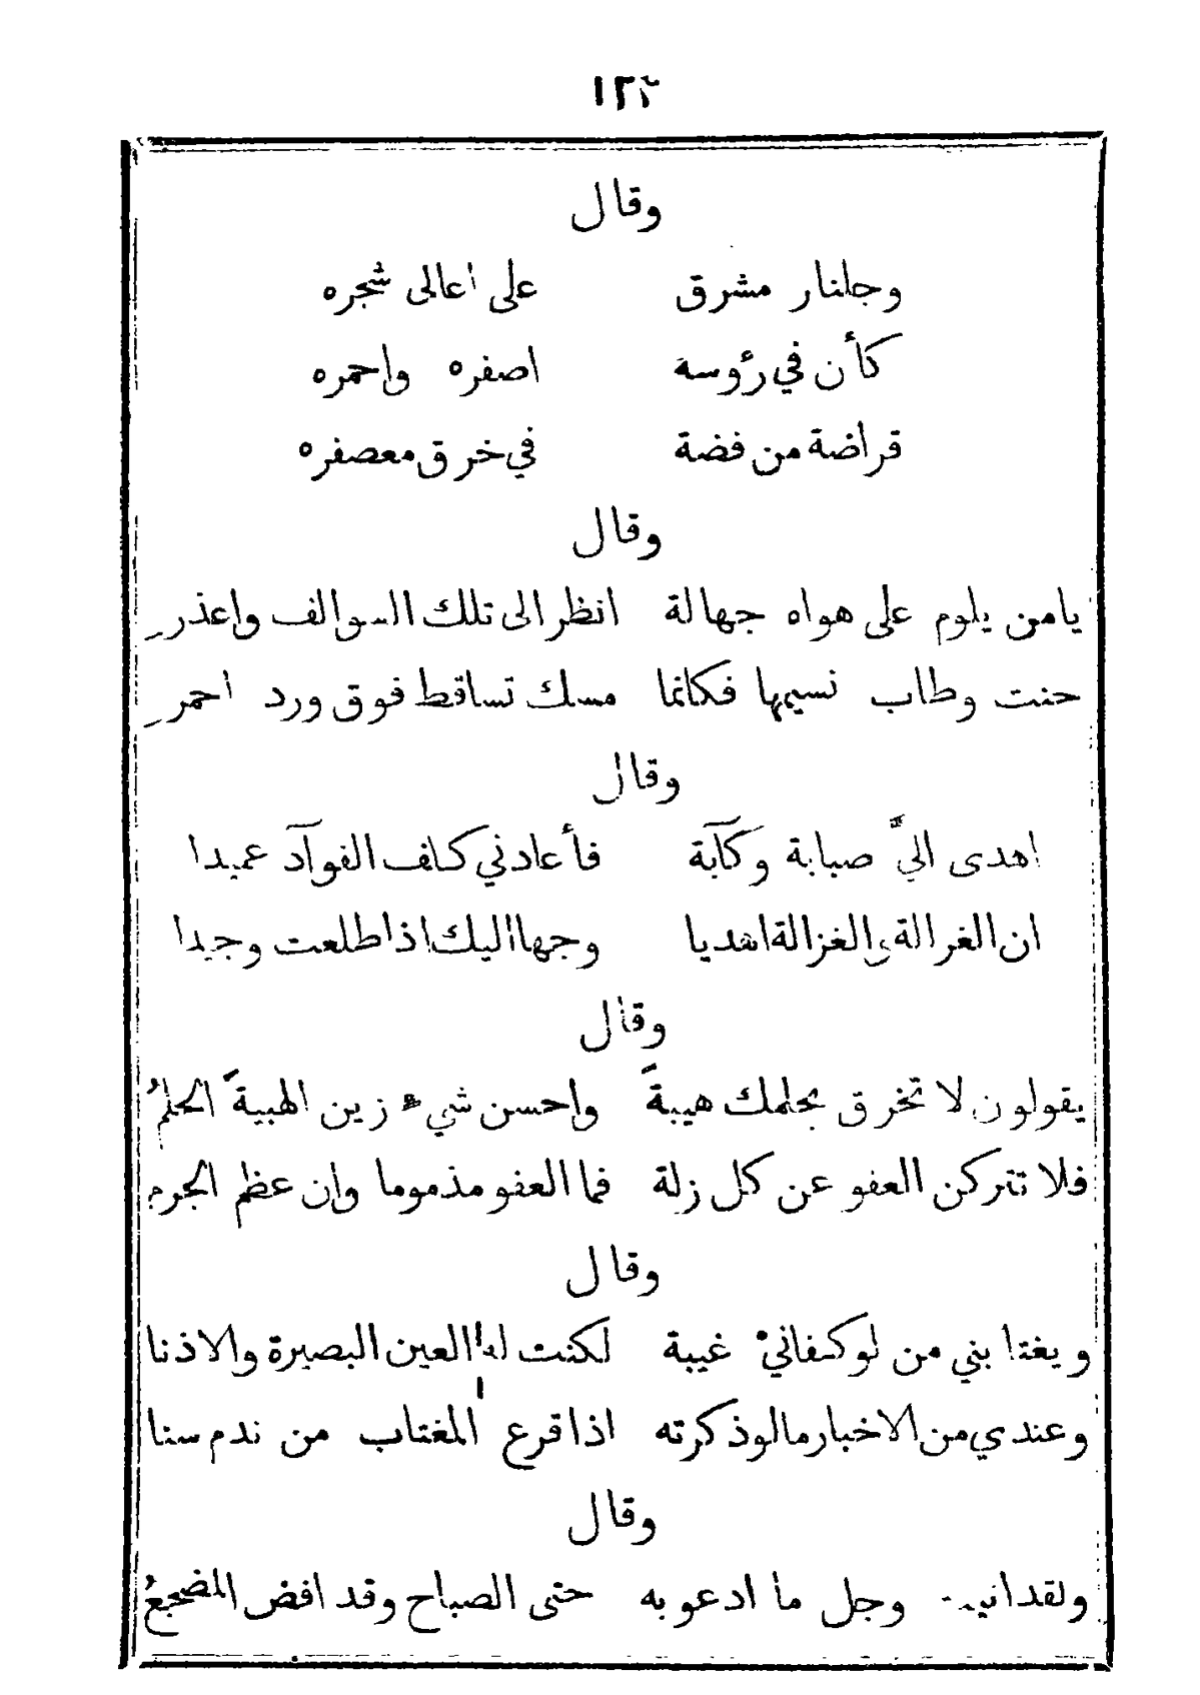 وقال
وجلنار مشرق على اعالى شجره
كأن في رؤسه اصفره واحمره
قراضة من فضة في خرق معصفره
وقال
يامن يلوم على هواه جهالة انظر الى تلك السوالف واعذر
حنت وطاب نسيمها فكانما مسك تساقط فوق ورد احمر
وقال
اهدى اليَّ صبابة وكآبة فأعادني كلف الفوآد عميدا
ان الغزالة والغزالة اهديا وجها اليك اذا طلعت وجيدا
وقال
يقولون لا تخرق بحلمك هيبةً واحسن شيء زين الهيبةَ الحلمُ
فلا تتركن العفو عن كل زلة فما العفو مذموما وان عظم الجرم
وقال
ويغتابني من لو كفاني غيبة لكنت له العين البصيرة والاذنا
وعندي من الاخبار مالو ذكرته اذا قرع المغتاب من ندم سنا
وقال
ولقد وجل ما ادعو به حتى الصباح وقد افض المضجعُ